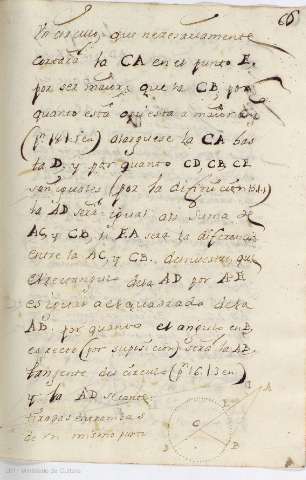 66
Un circulo, que necesariamente
cortará la CA en el punto E,
por ser maior que la CB, por
quanto está opuesta a maior an
(pº 18.1. en) alarguese la CA has
ta D, y por quanto CD, CB, CE
son iguales (por la difinicion 15.1.)
la AD será igual a la suma de
AC, y CB y EA será la diferencia
entre la AC, y CB. demuestro que
el rectangulo de la AD por AE
es igual a el quadrado de la
AB, por quanto el angulo en B,
es recto (por suposicion) será la AB,
tanjente del circulo (pº 16.3 en)
y la AD secante
tiradas entrambas
de un mismo punto
A
E
C
D
B
Ministerio de Cultura